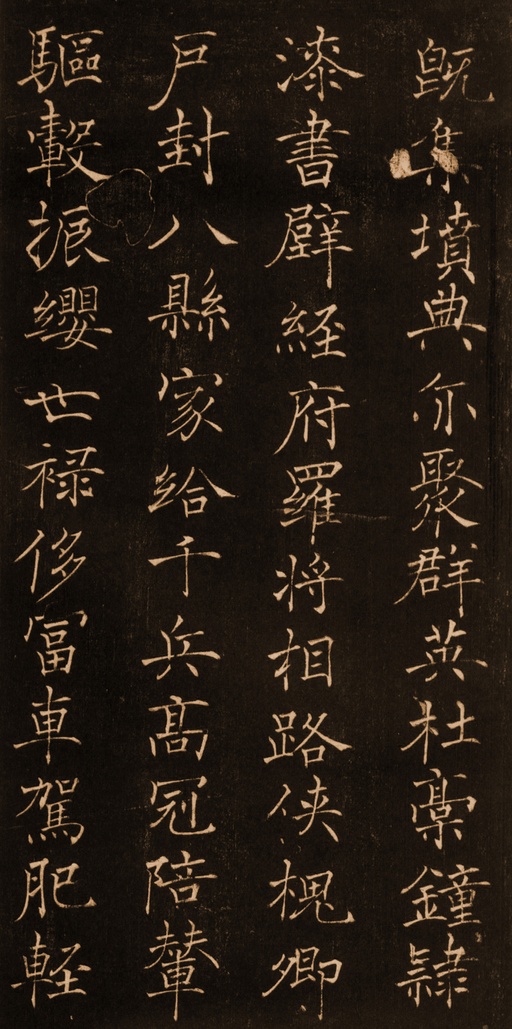 既集墳典亦聚群英杜稾鍾隸
漆書壁經府羅將相路俠槐卿
戶封八縣家給千兵高冠陪輦
驅轂振纓世祿侈富車駕肥輕